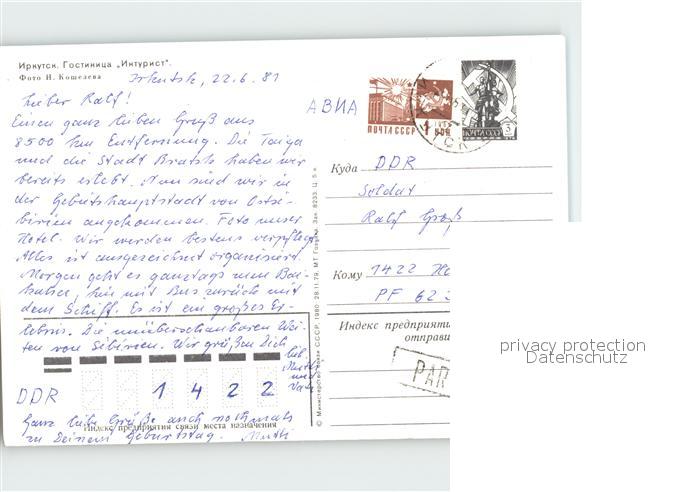 Иркутск. Гостиница „Интурист".
Фото Н. Кошелева
Irkutsk, 22.6.81
Lieber Ralf!
Einen ganz lieben Gruß aus
8500 km Entfernung. Die Taiga
und die Stadt Bratsk haben wir
bereits erlebt. Nun sind wir in
der Gebietshauptstadt von Ostsi-
birien angekommen. Foto unser
Hotel. Wir werden bestens verpflegt.
Alles ist ausgezeichnet organisiert.
Morgen geht es ganztags zum Bai-
kalsee, hin mit Bus zurück mit
dem Schiff. Es ist ein großes Er-
lebnis. Die unüberschaubaren Wei-
ten von Sibirien. Wir grüßen Dich
lieb.
Mutti
und
Vati
DDR
1422
Ganz liebe Grüße auch nochmals
zu Deinem Geburtstag. Mutti
Индекс предприятия связи места назначения
© Министерство связи СССР, 1980. 28.11.79. МТ Гознака. Зак. 8233. Ц. 5 к.
АВИА
ПОЧТА СССР
ПОЧТА СССР
3
Куда DDR
Soldat
Ralf Groß
Кому 1422
PF 62
Индекс предприяти
отправи
PAR
privacy protection
Datenschutz